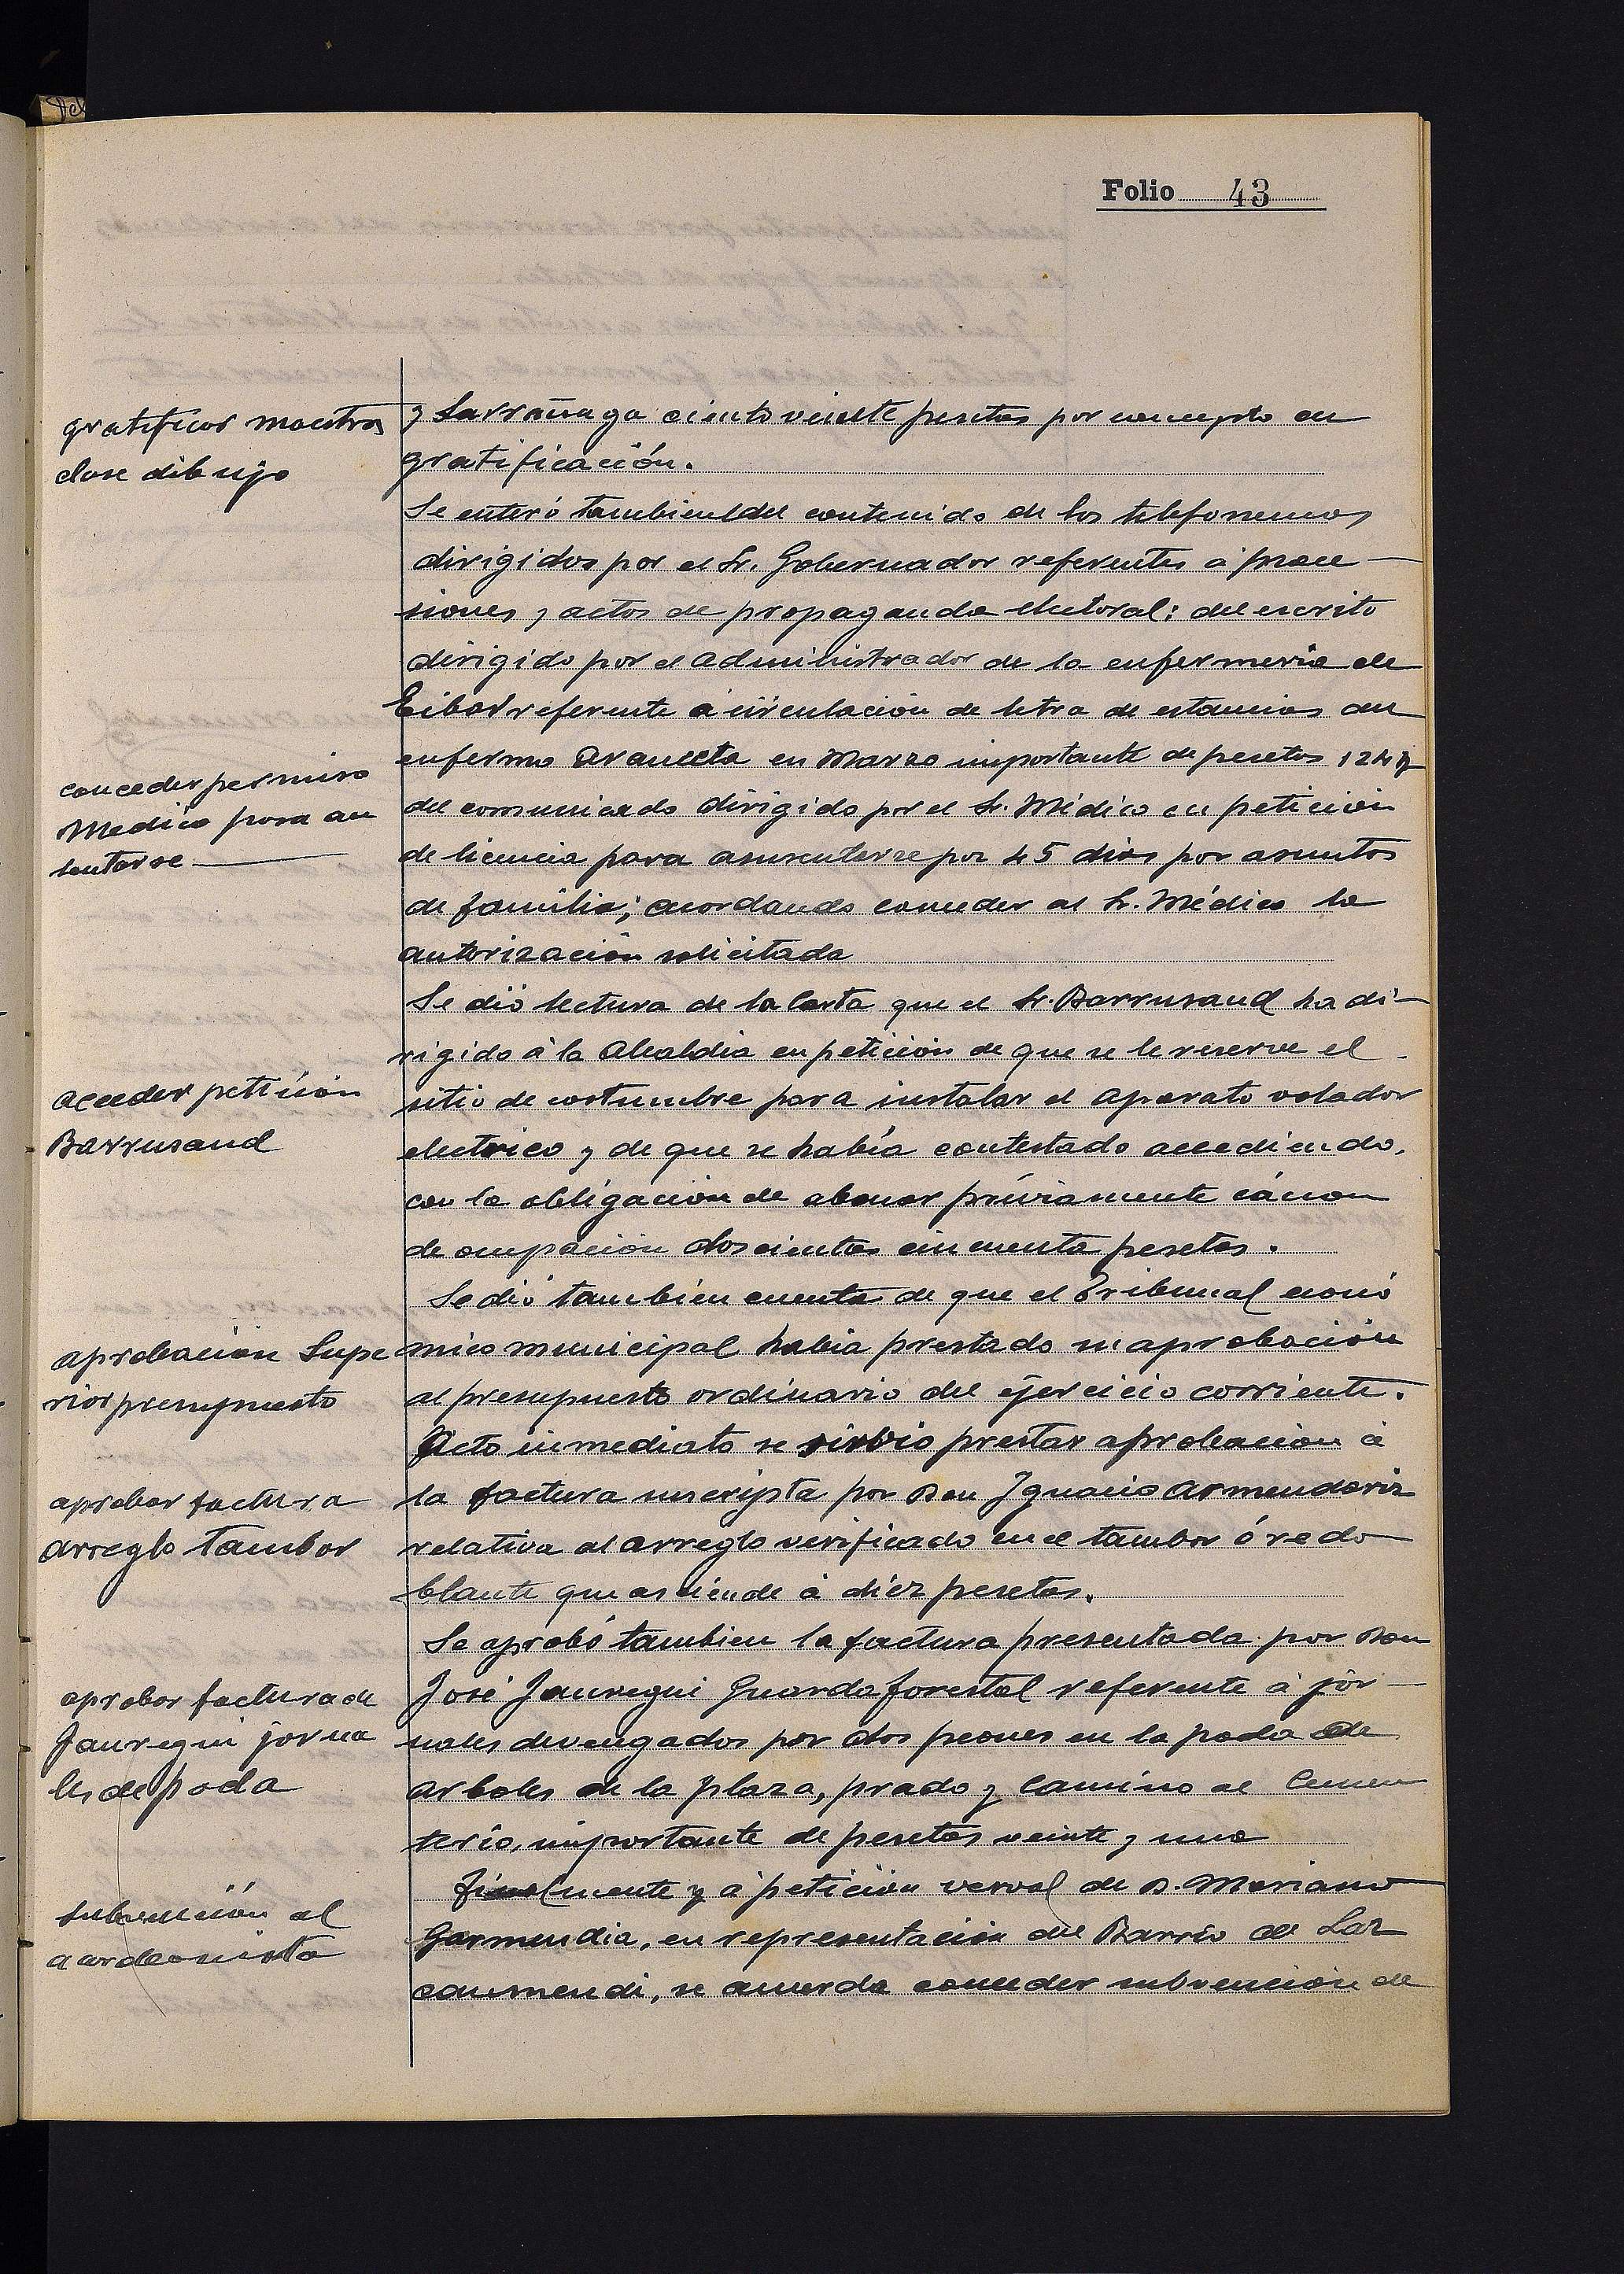 Folio 43
gratificar maestros
clase dibujo
y Larrañaga ciento veinte pesetas por concepto de
gratificación.
Se enteró tambien del contenido de los telefonemas
dirigidos por el Sr. Gobernador referentes á proce-
siones y actos de propaganda electoral: del escrito
dirigido por el administrador de la enfermeria de
Eibar referente á circulación de letra de estancias del
enfermo Aranceta en Marzo importante de pesetas 124
conceder permiso
Medico para au
sentarse
del comunicado dirigido por el Sr. Médico en petición
de licencia para ausentarse por 45 dias por asuntos
de familia; acordando conceder al Sr. Médico la
autorización solicitada
Se dió lectura de la Carta que el Sr. Barrusaud ha di-
rigido á la Alcaldia en petición de que se le reserve el
acceder petición
Barrusaud
sitio de costumbre para instalar el aparato volador
electrico y de que se había contestado accediendo,
con la obligación de abonar préviamente cánon
de ocupación doscientas cincuenta pesetas.
Se dió también cuenta de que el Tribunal econó
aprobación Supe
rior presupuesto
mico municipal habia prestado su aprobación
al presupuesto ordinario del ejercicio corriente.
Acto inmediato se sirvió prestar aprobación á
aprobar factura
arreglo tambor
la factura suscripta por Don Ignacio Armendariz
relativa al arreglo verificado en el tambor ó redo
blante que asciende á diez pesetas.
Se aprobó tambien la factura presentada por Don
aprobar factura de
Jauregui jorna
les de poda
José Jauregui Guarda forestal referente á jor-
nales devengados por dos peones en la poda de
arboles de la plaza, prado y camino al Cemen
terio, importante de pesetas veinte y una
Finalmente y á petición verval de D. Mariano
subención al
acordeonista
Garmendia, en representación del Barrio de Laz
caumendi, se acuerda conceder subvención de